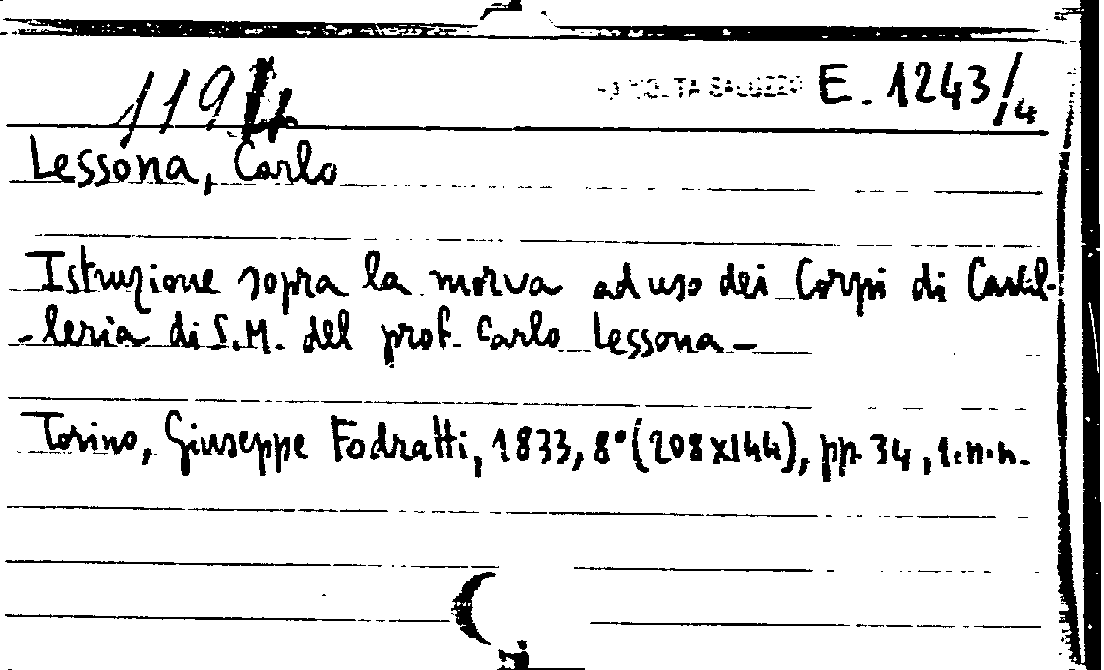 1194 E. 1243/4
Lessona, Carlo
Istruzione sopra la morva ad uso dei Corpi di Cavel-
-leria di S.M. del prof. Carlo Lessona -
Torino, Giuseppe Fodratti, 1833, 8° (208x144), pp. 34, 1.n.n.